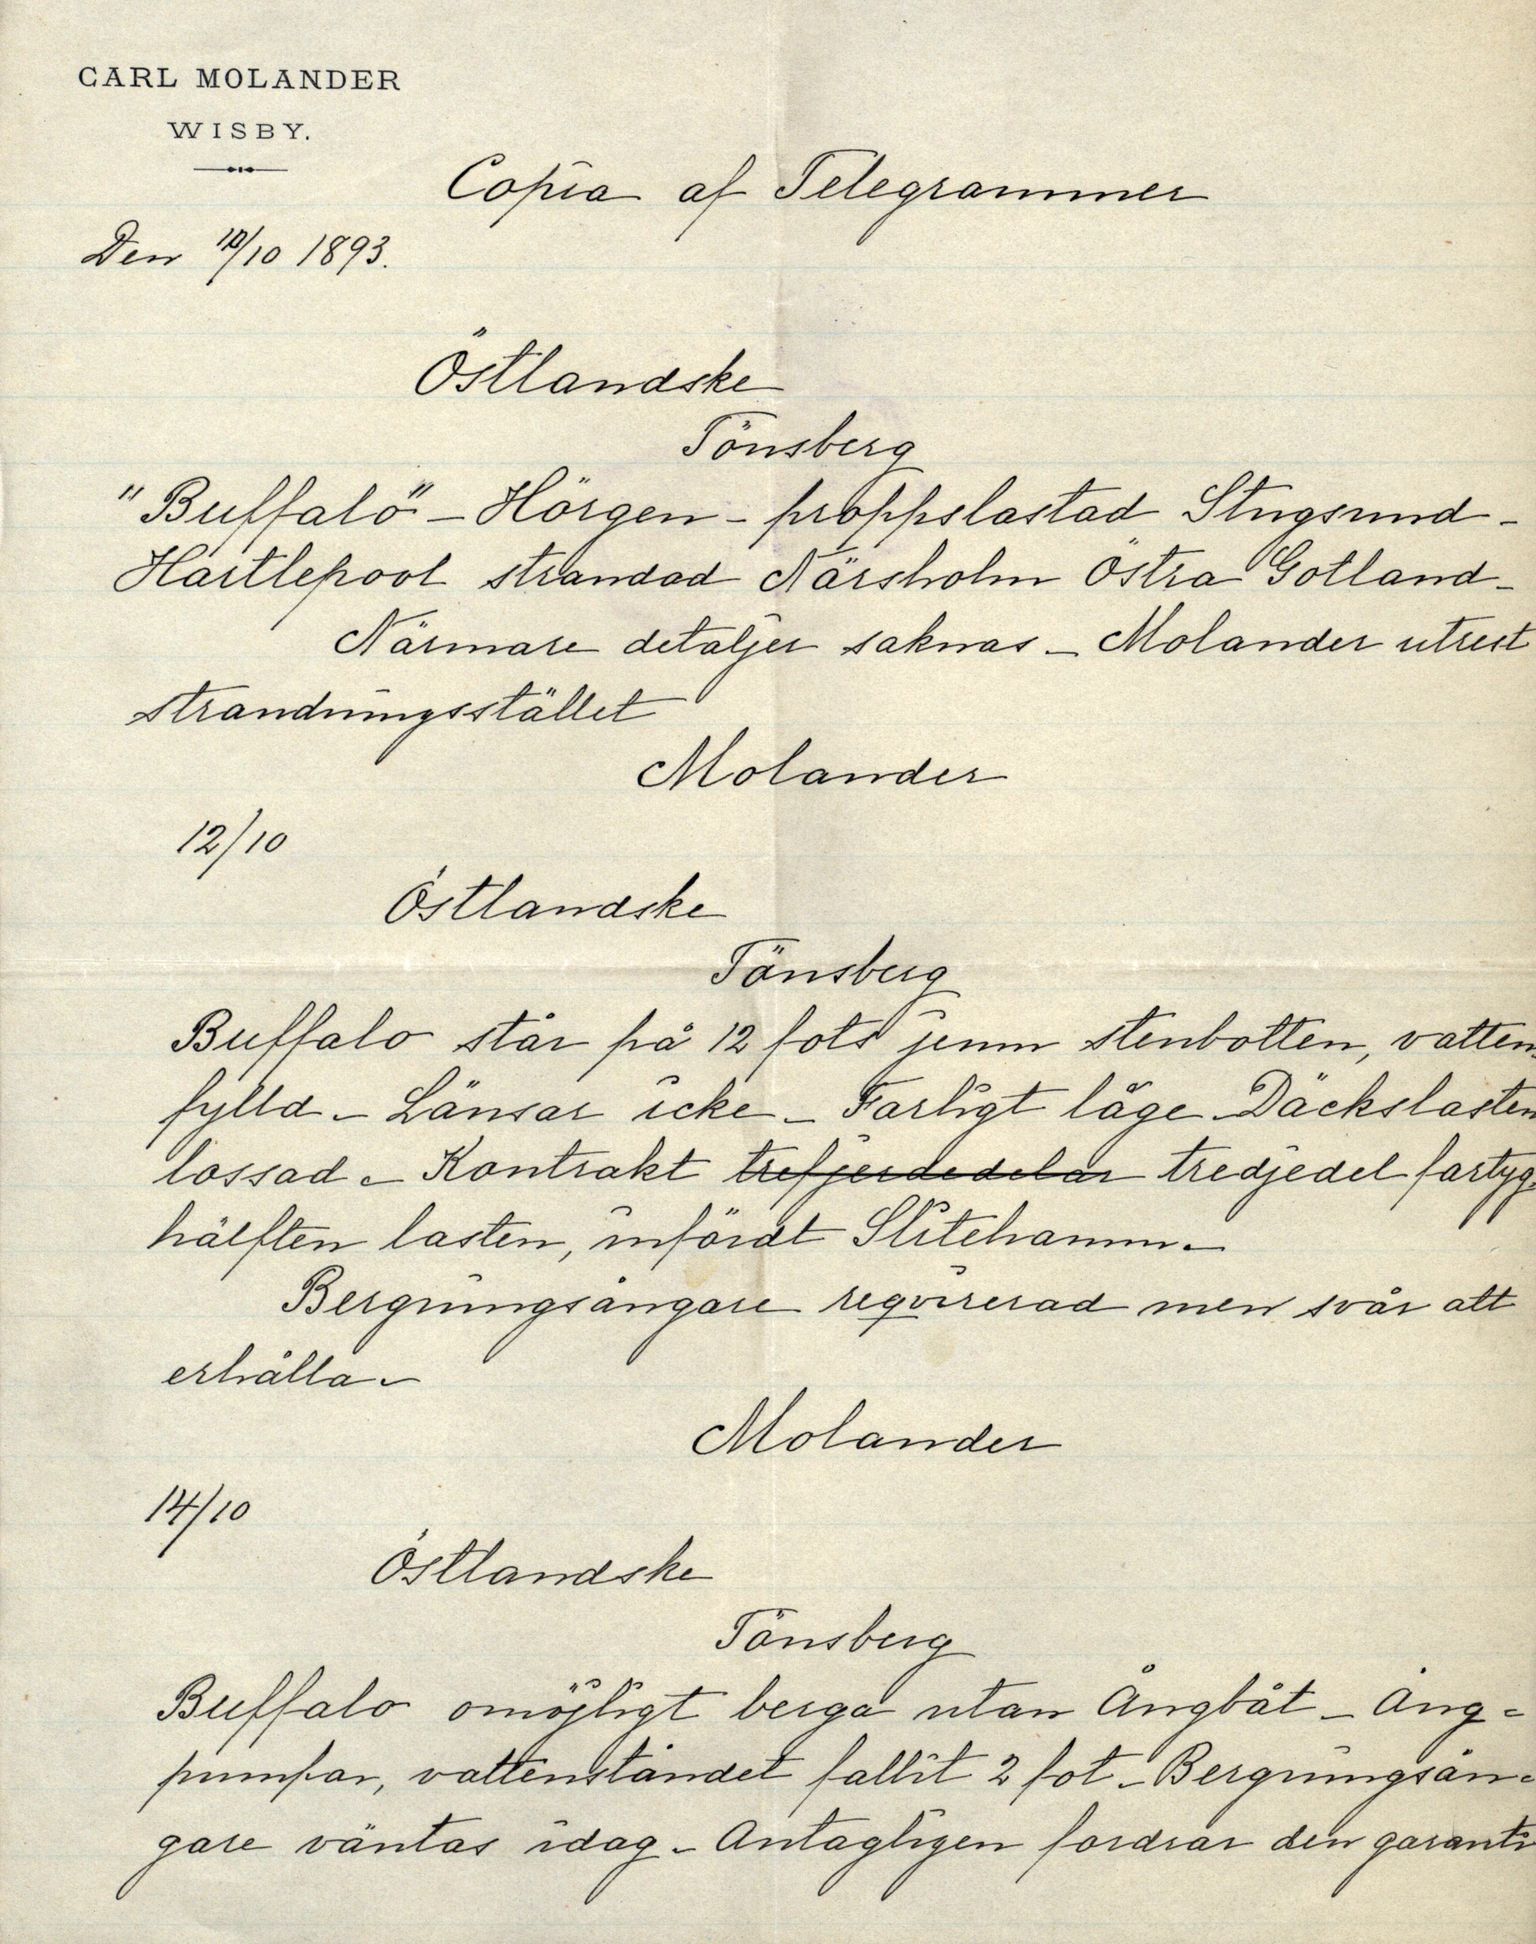 CARL MOLANDER
WISBY.
Copia af Telegrammer
Den 10/10 1893.
Östlandske
Tönsberg
"Buffalo" - Hörgen - proppslastad Stugsund -
Hartlepool strandad Närsholm Östra Gotland -
Närmare detaljer saknas - Molander utrest
strandningsstället
Molander
12/10
Östlandske
Tönsberg
Buffalo står på 12 fots jemn stenbotten, vatten-
fylld - Länsar icke - Farligt läge - Däckslasten
lossad - Kontrakt trefjerdedelar tredjedel fartyg-
hälften lasten, infördt Slitehamn -
Bergningsångare reqvirerad men svår att
erhålla -
Molander
14/10
Östlandske
Tönsberg
Buffalo omöjligt berga utan Ångbåt - Ång=
pumpar, vattenståndet fallit 2 fot - Bergningsån=
gare väntas idag - Antagligen fordrar den garanti